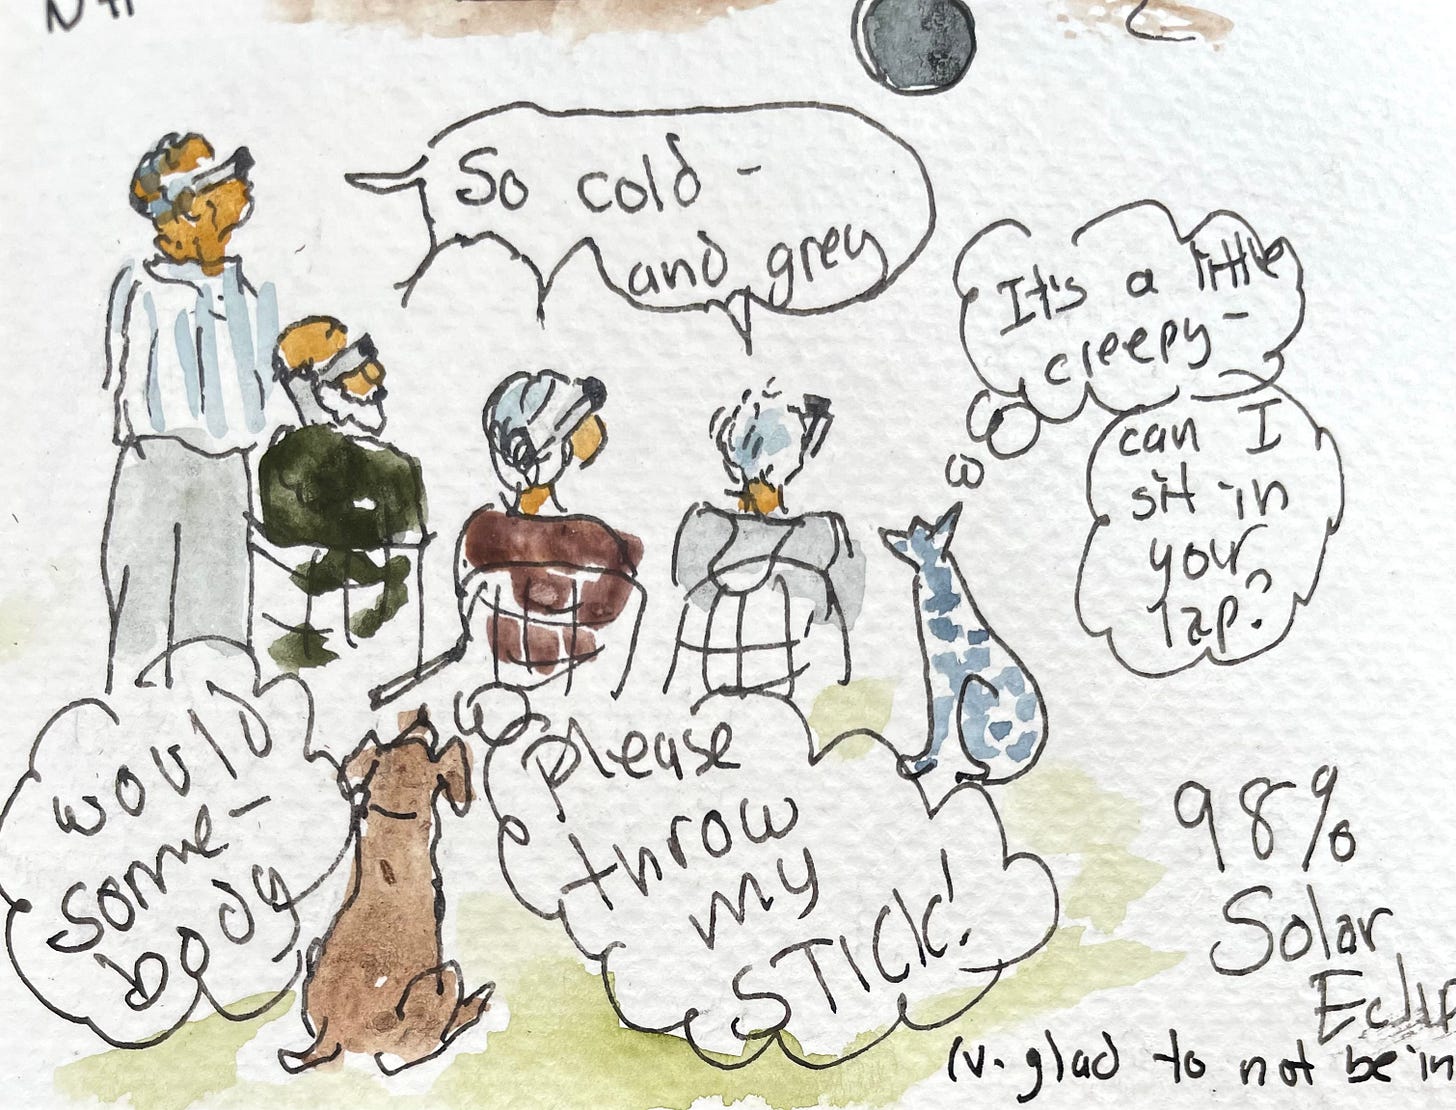 NH
So cold -
and grey
It's a little
creepy -
can I
sit in
your
lap?
would
some-
body
please
throw
my
STICK!
98%
Solar
(v. glad to not be in